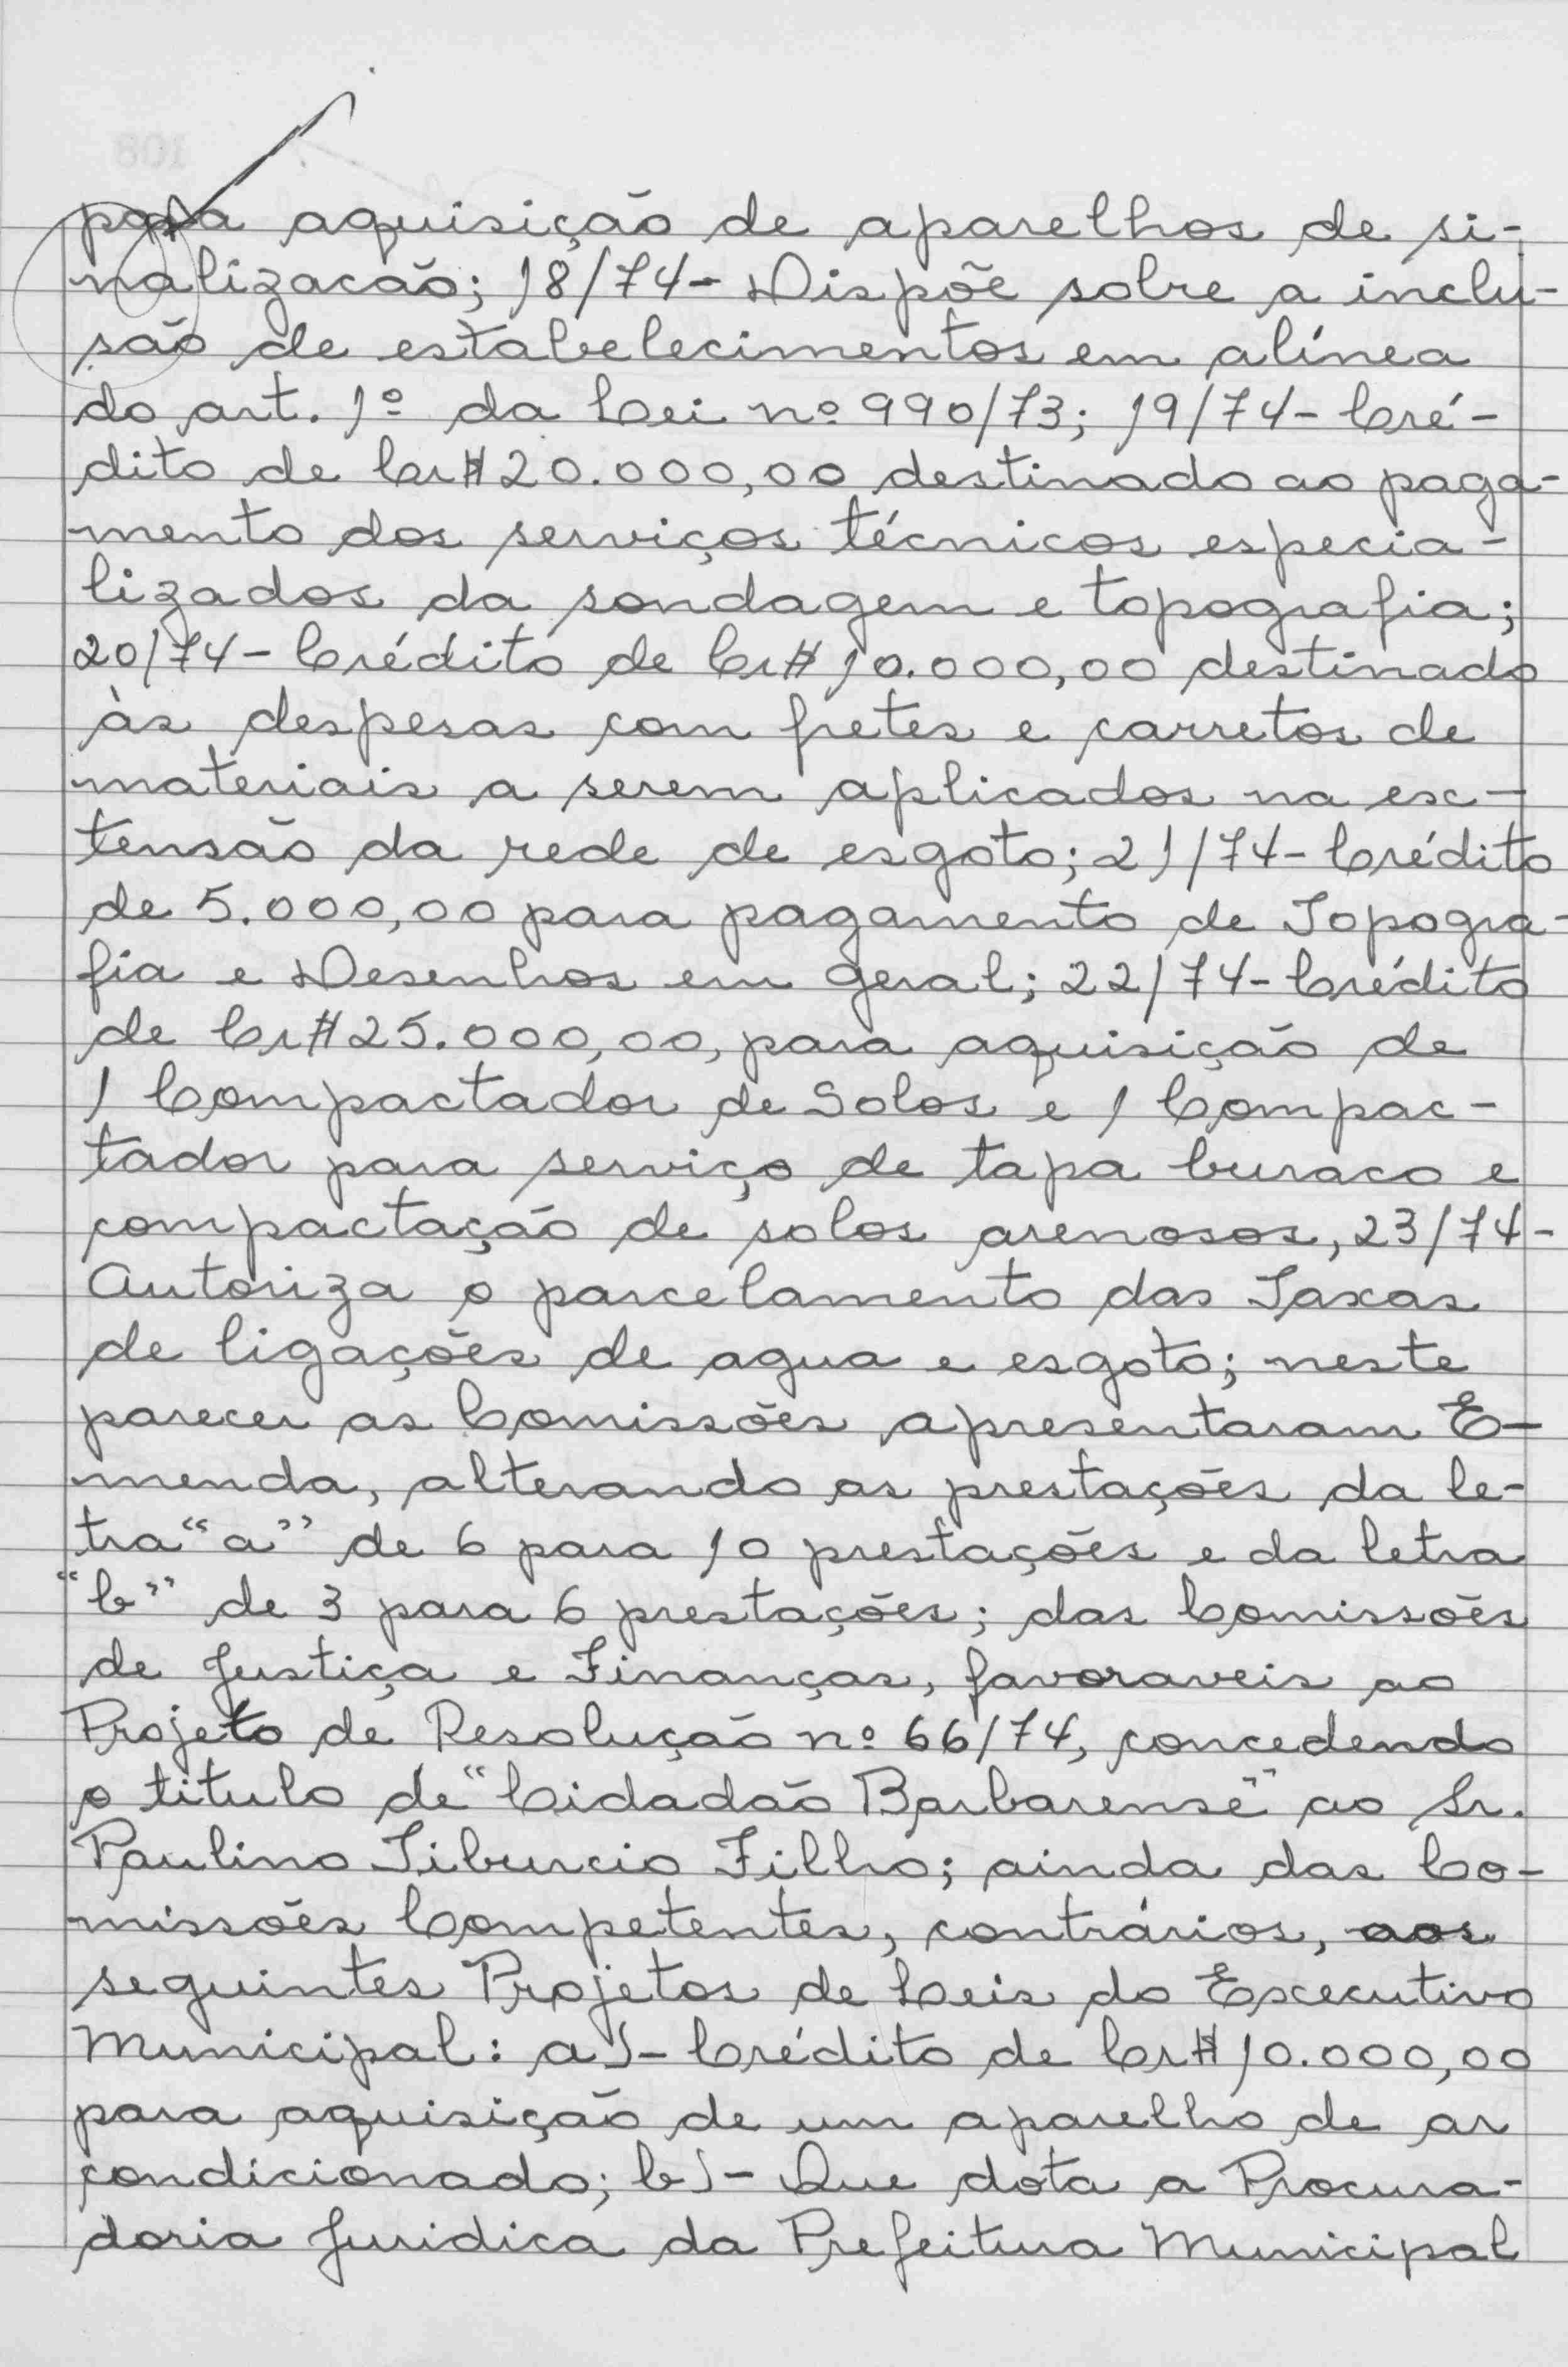 para aquisição de aparelhos de si-
nalizacão; 18/74- Dispõe sobre a inclu-
são de estabelecimentos em alínea
do art. 1º da Lei nº 990/73; 19/74- Cré-
dito de Cr$ 20.000,00 destinado ao paga-
mento dos serviços técnicos especia-
lizados da sondagem e topografia;
20/74- Crédito de Cr$ 10.000,00 destinado
às despesas com fretes e carretos de
materiais a serem aplicados na ex-
tensão da rede de esgoto; 21/74- Crédito
de 5.000,00 para pagamento de Topogra-
fia e Desenhos em geral; 22/74- Crédito
de Cr$ 25.000,00, para aquisição de
1 Compactador de Solos e 1 Compac-
tador para serviço de tapa buraco e
compactação de solos arenosos, 23/74-
Autoriza o parcelamento das Taxas
de ligações de agua e esgoto; neste
parecer as Comissões apresentaram E-
menda, alterando as prestações da le-
tra "a" de 6 para 10 prestações e da letra
"b" de 3 para 6 prestações; das Comissões
de Justiça e Finanças, favoraveis ao
Projeto de Resolução nº 66/74, concedendo
o titulo de "Cidadão Barbarense" ao Sr.
Paulino Tiburcio Filho; ainda das Co-
missões Competentes, contrários, aos
seguintes Projetos de Leis do Executivo
Municipal: a)- Crédito de Cr$ 10.000,00
para aquisição de um aparelho de ar
condicionado; b)- Que dota a Procura-
doria Juridica da Prefeitura Municipal